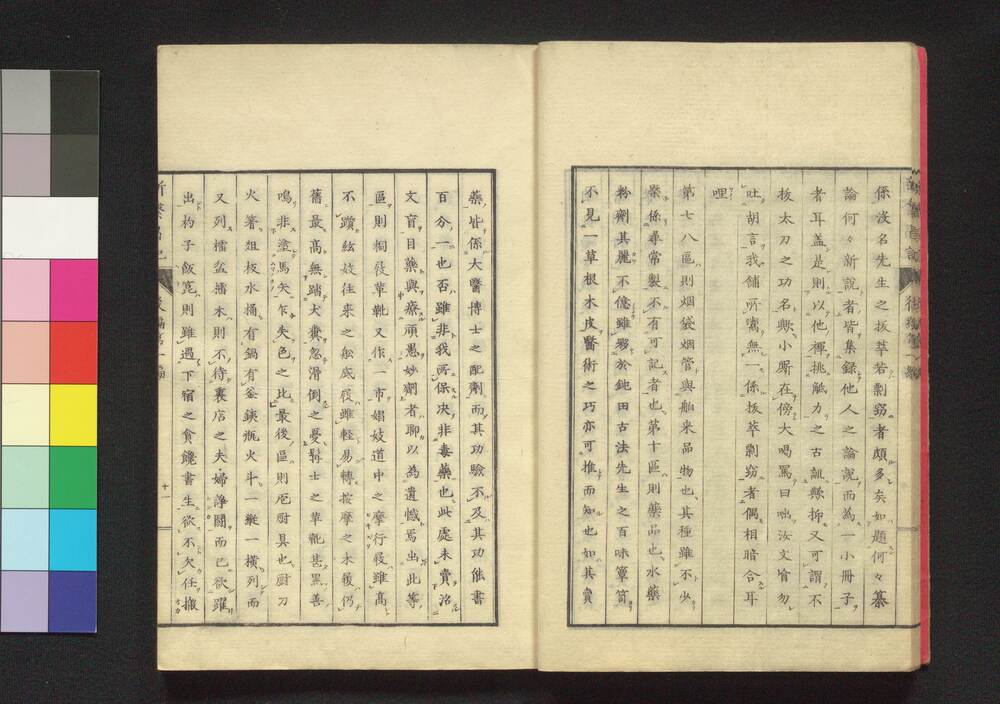 係沒名先生之抜萃若剽窃者頗多矣如題何々纂
論何々新説者皆集録他人之論説而為一小冊子
者耳盖是則以他褌挑觝力之古諷懸抑又可謂不
抜太刀之功名歟小厮在傍大喝罵曰咄汝文盲勿
吐胡言我舗所賣無一係抜萃剽窃者偶相暗合耳
哩
第七八區則烟袋烟管與舶来品物也其種雖不少
槩係尋常製不有可記者也第十區則藥品也水藥
粉劑其麗不億雖夥於鈍田古法先生之百味簞笥
不見一草根木皮醫術之巧亦可推而知也如其賣
藥皆係大醫博士之配劑而其功驗不及其功能書
百分一也否雖非我所保决非毒藥也此處未賣治
文盲目藥與療頑愚妙劑者聊以為遺憾焉出此等
區則桐屐草靴又作一市娼妓道中之摩行屐雖高
不躓絃妓往来之舩底屐雖軽易轉按摩之木履仍
舊最高無踏犬糞忽滑倒之憂髯士之革靴甚黒善
鳴非塗馬矢乍失色之比最後區則厄厨具也厨刀
火箸俎板水桶有鍋有釜鉄瓶火斗一縦一横列而
又列擂盆擂木則不待裏店之夫婦諍鬪而已欲躍
出杓子飯笕則雖遇下宿之貪饞書生欲不欠任搬